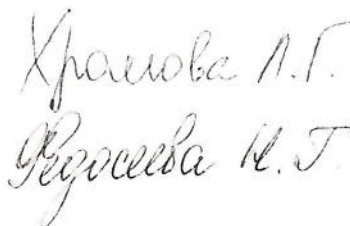 Храмова Л.Г.
Федосеева Н.Г.